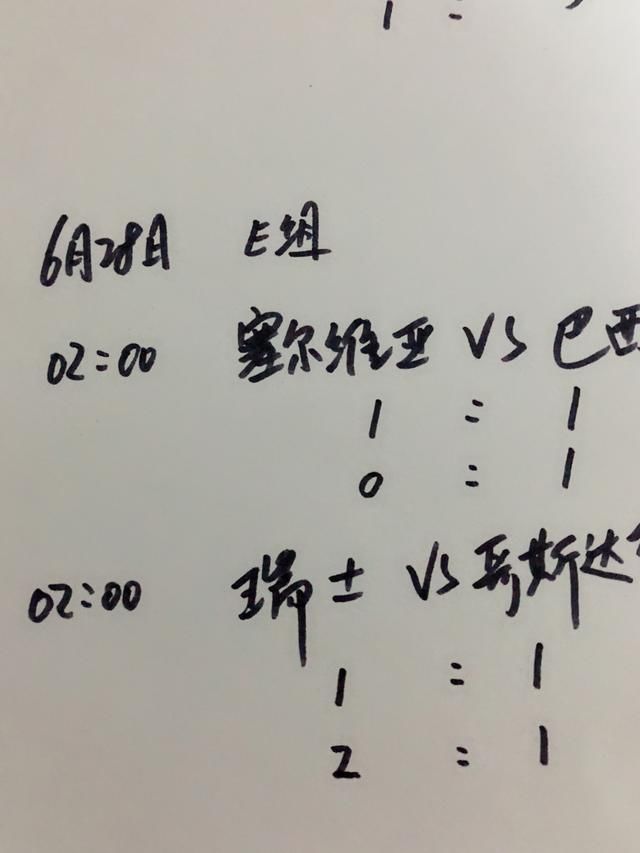 1 :
6月28日 E组
02:00 塞尔维亚 VS 巴西
1 : 1
0 : 1
02:00 瑞士 VS 哥斯达
1 : 1
2 : 1